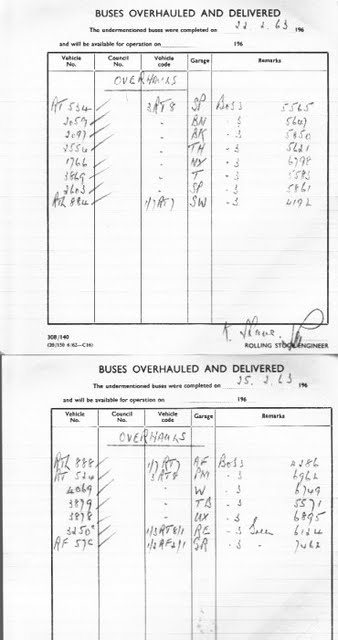 BUSES OVERHAULED AND DELIVERED
The undermentioned buses were completed on 22. 2. 63 196
and will be available for operation on 196
Vehicle No. Council No. Vehicle code Garage Remarks
OVERHAULS
RT 534 3RT8 SP Bo S3 5565
2059 " BN - 3
2097 " AK - 3 5850
2554 " TH - 3 5621
1766 " NX - 3 6798
3869 " T - 3 5583
2603 " SP - 3 5861
RTL 884 1/7RT7 SW - 3 4192
ROLLING STOCK ENGINEER
308/140
BUSES OVERHAULED AND DELIVERED
The undermentioned buses were completed on 25. 2. 63 196
and will be available for operation on 196
Vehicle No. Council No. Vehicle code Garage Remarks
OVERHAULS
RTL 888 1/7RT7 AF Bo S3 4286
RT 524 3RT8 PM - 3 6962
4069 " W - 3 6749
3879 " TB - 3 5571
3878 " UX - 3 6895
3250 1/3RT8/1 RE - 3 6124
RF 1/2RF2/1 SR - 3 " 7462